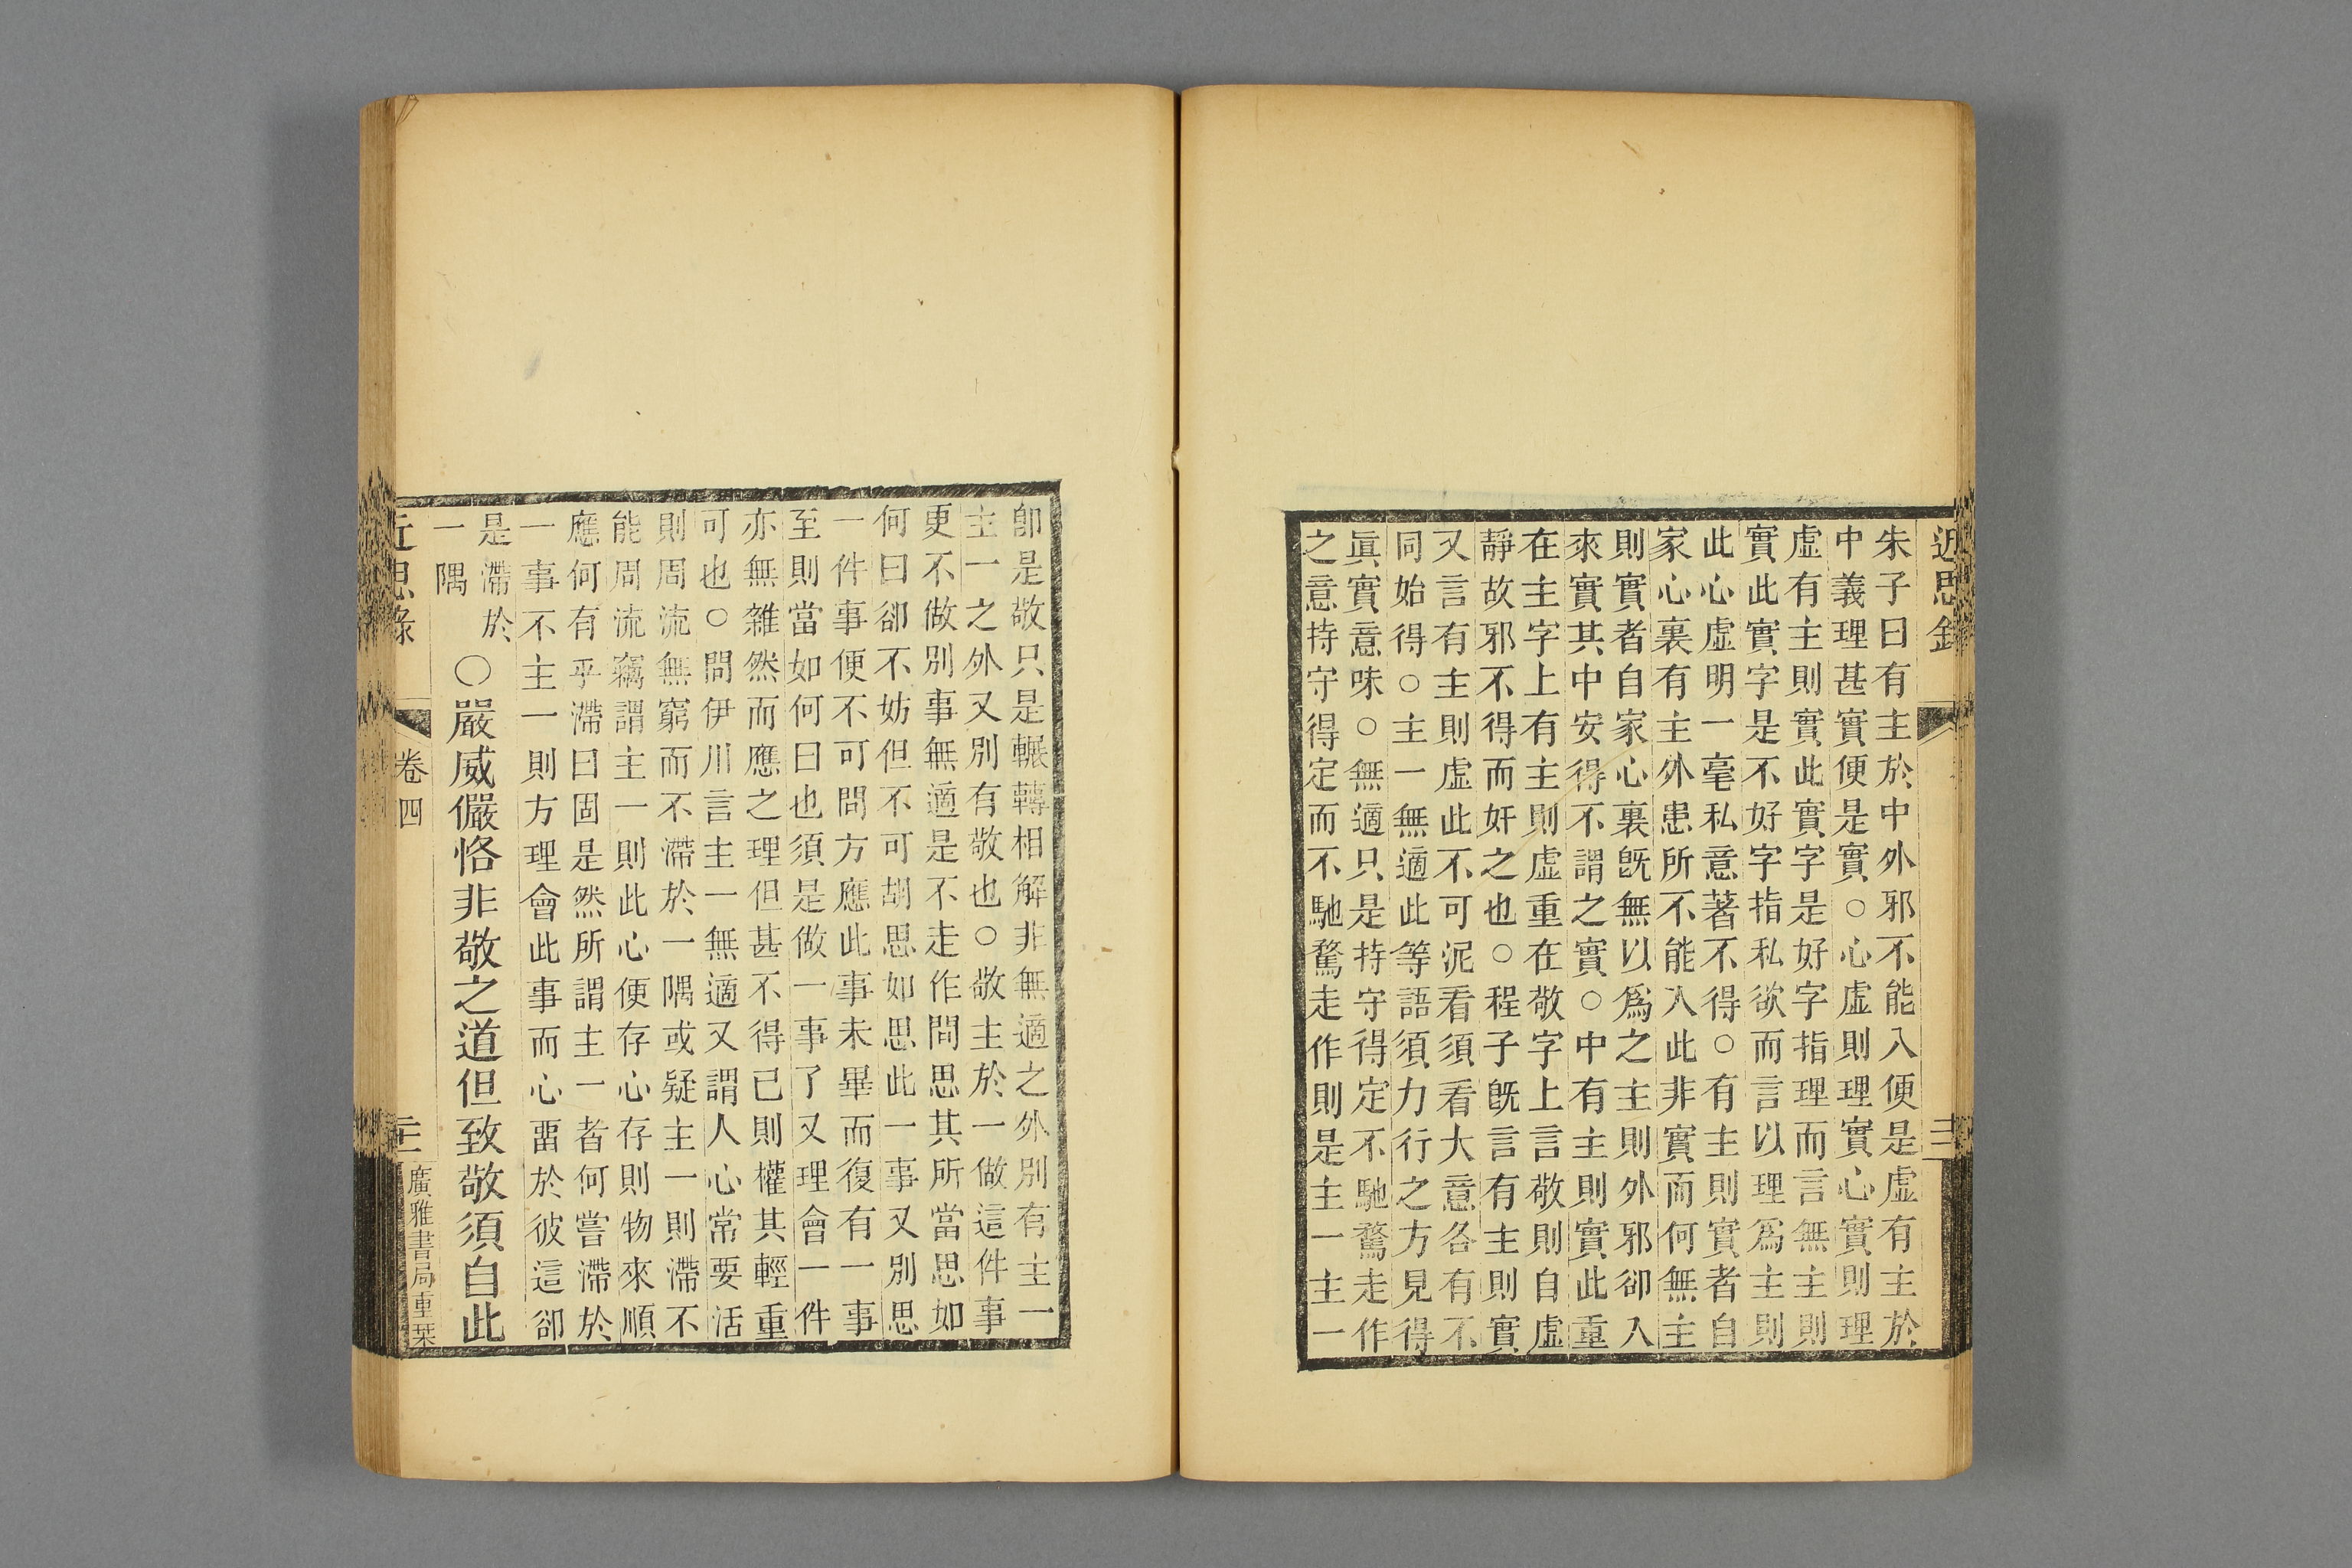 近思錄
朱子曰有主於中外邪不能入便是虛有主於
中義理甚實便是實○心虛則理實心實則理
虛有主則實此實字是好字指理而言無主則
實此實字是不好字指私欲而言以理爲主則
此心虛明一毫私意著不得○有主則實者自
家心裏有主外患所不能入此非實而何無主
則實者自家心裏旣無以爲之主則外邪卻入
來實其中安得不謂之實○中有主則實此重
在主字上有主則虛重在敬字上言敬則自虛
靜故邪不得而奸之也○程子旣言有主則實
又言有主則虛此不可泥看須看大意各有不
同始得○主一無適此等語須力行之方見得
眞實意味○無適只是持守得定不馳騖走作
之意持守得定而不馳騖走作則是主一主一
卽是敬只是輾轉相解非無適之外別有主一
主一之外又別有敬也○敬主於一做這件事
更不做別事無適是不走作問思其所當思如
何曰卻不妨但不可胡思如思此一事又別思
一件事便不可問方應此事未畢而復有一事
至則當如何曰也須是做一事了又理會一件
亦無雜然而應之理但甚不得已則權其輕重
可也○問伊川言主一無適又謂人心常要活
則周流無窮而不滯於一隅或疑主一則滯不
能周流竊謂主一則此心便存心存則物來順
應何有乎滯曰固是然所謂主一者何嘗滯於
一事不主一則方理會此事而心畱於彼這卻
是滯於
一隅
○嚴威儼恪非敬之道但致敬須自此
近思錄
卷四
廣雅書局重栞